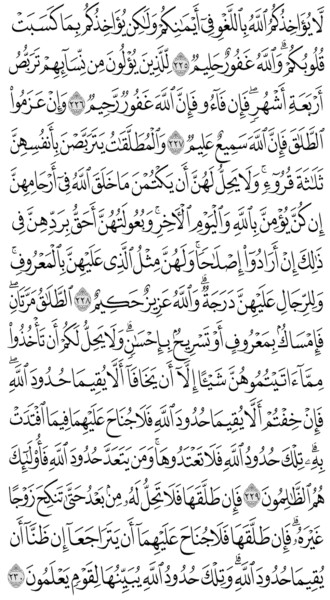 لَّا يُؤَاخِذُكُمُ ٱللَّهُ بِٱللَّغۡوِ فِيٓ أَيۡمَٰنِكُمۡ وَلَٰكِن يُؤَاخِذُكُم بِمَا كَسَبَتۡ
قُلُوبُكُمۡۗ وَٱللَّهُ غَفُورٌ حَلِيمٞ ٢٢٥ لِّلَّذِينَ يُؤۡلُونَ مِن نِّسَآئِهِمۡ تَرَبُّصُ
أَرۡبَعَةِ أَشۡهُرٖۖ فَإِن فَآءُو فَإِنَّ ٱللَّهَ غَفُورٞ رَّحِيمٞ ٢٢٦ وَإِنۡ عَزَمُواْ
ٱلطَّلَٰقَ فَإِنَّ ٱللَّهَ سَمِيعٌ عَلِيمٞ ٢٢٧ وَٱلۡمُطَلَّقَٰتُ يَتَرَبَّصۡنَ بِأَنفُسِهِنَّ
ثَلَٰثَةَ قُرُوٓءٖۚ وَلَا يَحِلُّ لَهُنَّ أَن يَكۡتُمۡنَ مَا خَلَقَ ٱللَّهُ فِيٓ أَرۡحَامِهِنَّ
إِن كُنَّ يُؤۡمِنَّ بِٱللَّهِ وَٱلۡيَوۡمِ ٱلۡأٓخِرِۚ وَبُعُولَتُهُنَّ أَحَقُّ بِرَدِّهِنَّ فِي
ذَٰلِكَ إِنۡ أَرَادُوٓاْ إِصۡلَٰحٗاۚ وَلَهُنَّ مِثۡلُ ٱلَّذِي عَلَيۡهِنَّ بِٱلۡمَعۡرُوفِۚ
وَلِلرِّجَالِ عَلَيۡهِنَّ دَرَجَةٞۗ وَٱللَّهُ عَزِيزٌ حَكِيمٌ ٢٢٨ ٱلطَّلَٰقُ مَرَّتَانِۖ
فَإِمۡسَاكُۢ بِمَعۡرُوفٍ أَوۡ تَسۡرِيحُۢ بِإِحۡسَٰنٖۗ وَلَا يَحِلُّ لَكُمۡ أَن تَأۡخُذُواْ
مِمَّآ ءَاتَيۡتُمُوهُنَّ شَيۡـًٔا إِلَّآ أَن يَخَافَآ أَلَّا يُقِيمَا حُدُودَ ٱللَّهِۖ
فَإِنۡ خِفۡتُمۡ أَلَّا يُقِيمَا حُدُودَ ٱللَّهِ فَلَا جُنَاحَ عَلَيۡهِمَا فِيمَا ٱفۡتَدَتۡ
بِهِۦۗ تِلۡكَ حُدُودُ ٱللَّهِ فَلَا تَعۡتَدُوهَاۚ وَمَن يَتَعَدَّ حُدُودَ ٱللَّهِ فَأُوْلَٰٓئِكَ
هُمُ ٱلظَّٰلِمُونَ ٢٢٩ فَإِن طَلَّقَهَا فَلَا تَحِلُّ لَهُۥ مِنۢ بَعۡدُ حَتَّىٰ تَنكِحَ زَوۡجًا
غَيۡرَهُۥۗ فَإِن طَلَّقَهَا فَلَا جُنَاحَ عَلَيۡهِمَآ أَن يَتَرَاجَعَآ إِن ظَنَّآ أَن
يُقِيمَا حُدُودَ ٱللَّهِۗ وَتِلۡكَ حُدُودُ ٱللَّهِ يُبَيِّنُهَا لِقَوۡمٖ يَعۡلَمُونَ ٢٣٠